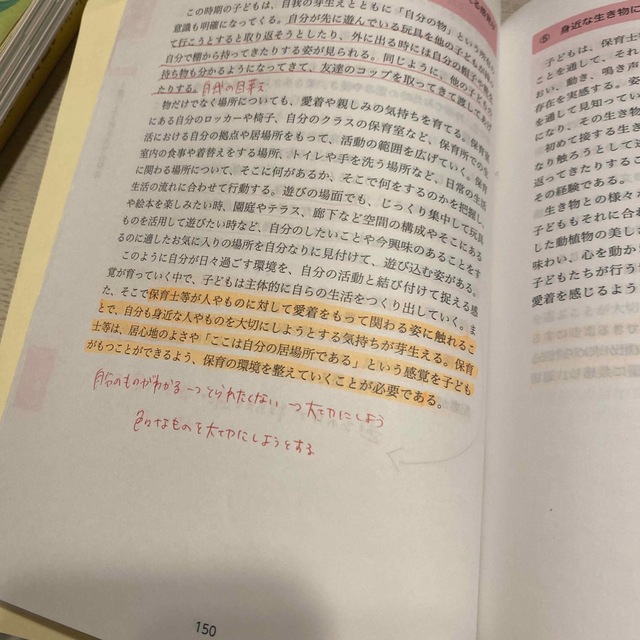 この時期の子どもは、自我の芽生えとともに「自分の物」という所有
意識も明確になってくる。自分が先に遊んでいる玩具を他の子どもが
て行こうとすると取り返そうとしたり、外に出る時には自分の帽子を
自分で棚から持ってきたりする姿が見られる。同じように、他の子ども
持ち物も分かるようになってきて、友達のコップを取ってきて渡してあげ
たりする。自我の目芽え
物だけでなく場所についても、愛着や親しみの気持ちを育てる。保育室
にある自分のロッカーや椅子、自分のクラスの保育室など、保育所での生
活における自分の拠点や居場所をもって、活動の範囲を広げていく。保育
室内の食事や着替えをする場所、トイレや手を洗う場所など、日常の生活
に関わる場所について、そこに何があるか、そこで何をするのかを把握し、
生活の流れに合わせて行動する。遊びの場面でも、じっくり集中して玩具
や絵本を楽しみたい時、園庭やテラス、廊下など空間の構成やそこにある
ものを活用して遊びたい時など、自分のしたいことや今興味のあることをす
るのに適したお気に入りの場所を自分なりに見付けて、遊び込む姿がある。
このように自分が日々過ごす環境を、自分の活動と結び付けて捉える感
覚が育っていく中で、子どもは主体的に自らの生活をつくり出していく。ま
た、そこで保育士等が人やものに対して愛着をもって関わる姿に触れるこ
とで、自分も身近な人やものを大切にしようとする気持ちが芽生える。保育
士等は、居心地のよさや「ここは自分の居場所である」という感覚を子ども
がもつことができるよう、保育の環境を整えていくことが必要である。
自分のものがわかる → とられたくない → 大切にしよう
色々なものを大切にしようとする
150
⑤ 身近な生き物に
子どもは、保育士
ことを通して、それ
おい、動き、鳴き声
存在を実感する。姿
を通して見知ってい
になり、その生き物
初めて接する生き
なり触ろうとして逃
返ってきたりするこ
その経験である。
生き物との様々な
子どももそれに合
した動植物の美しさ
味わい、心を動か
子どもたちが行う
愛着を感じるよう